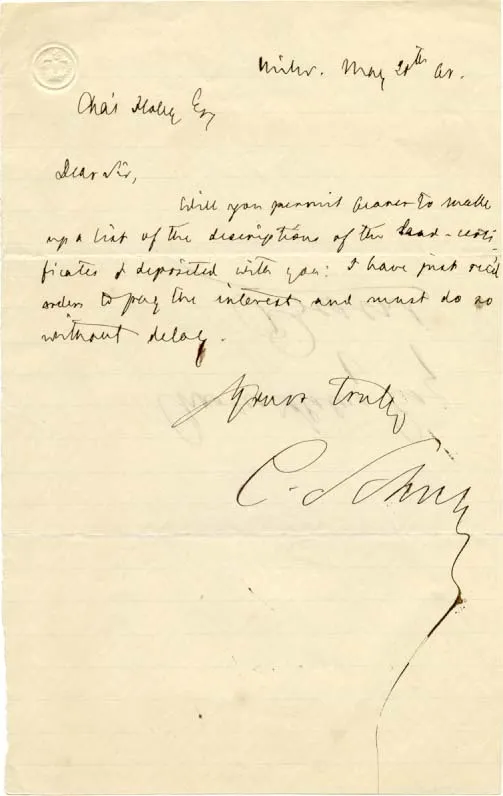 Milw. May 28th 60.
Cha's Esq
Dear Sir,
Will you permit bearer to make
up a list of the descriptions of the land-certi-
ficates I deposited with you: I have just rec'd
orders to pay the interest and must do so
without delay.
Yours truly
C. Schurz